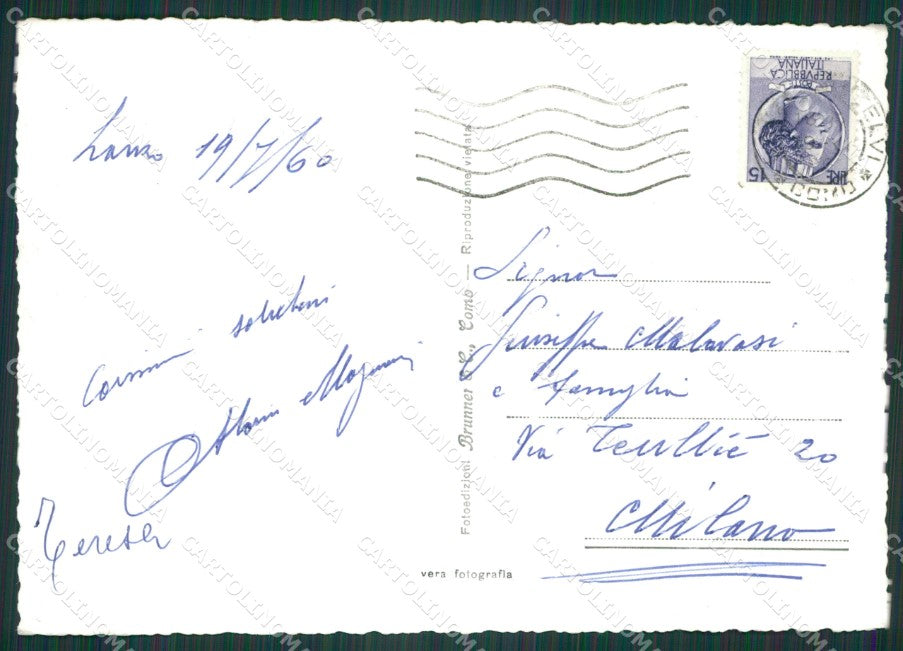 Lanzo 19/7/60
saluti
Teresa
Signor
Giuseppe Malavasi
e famiglia
Via Teulliè 20
Milano
Fotoedizioni Brunner & C., Como — Riproduzione vietata
vera fotografia
REPVBBLICA
ITALIANA
LIRE 15
COMO
CARTOLINOMANIA